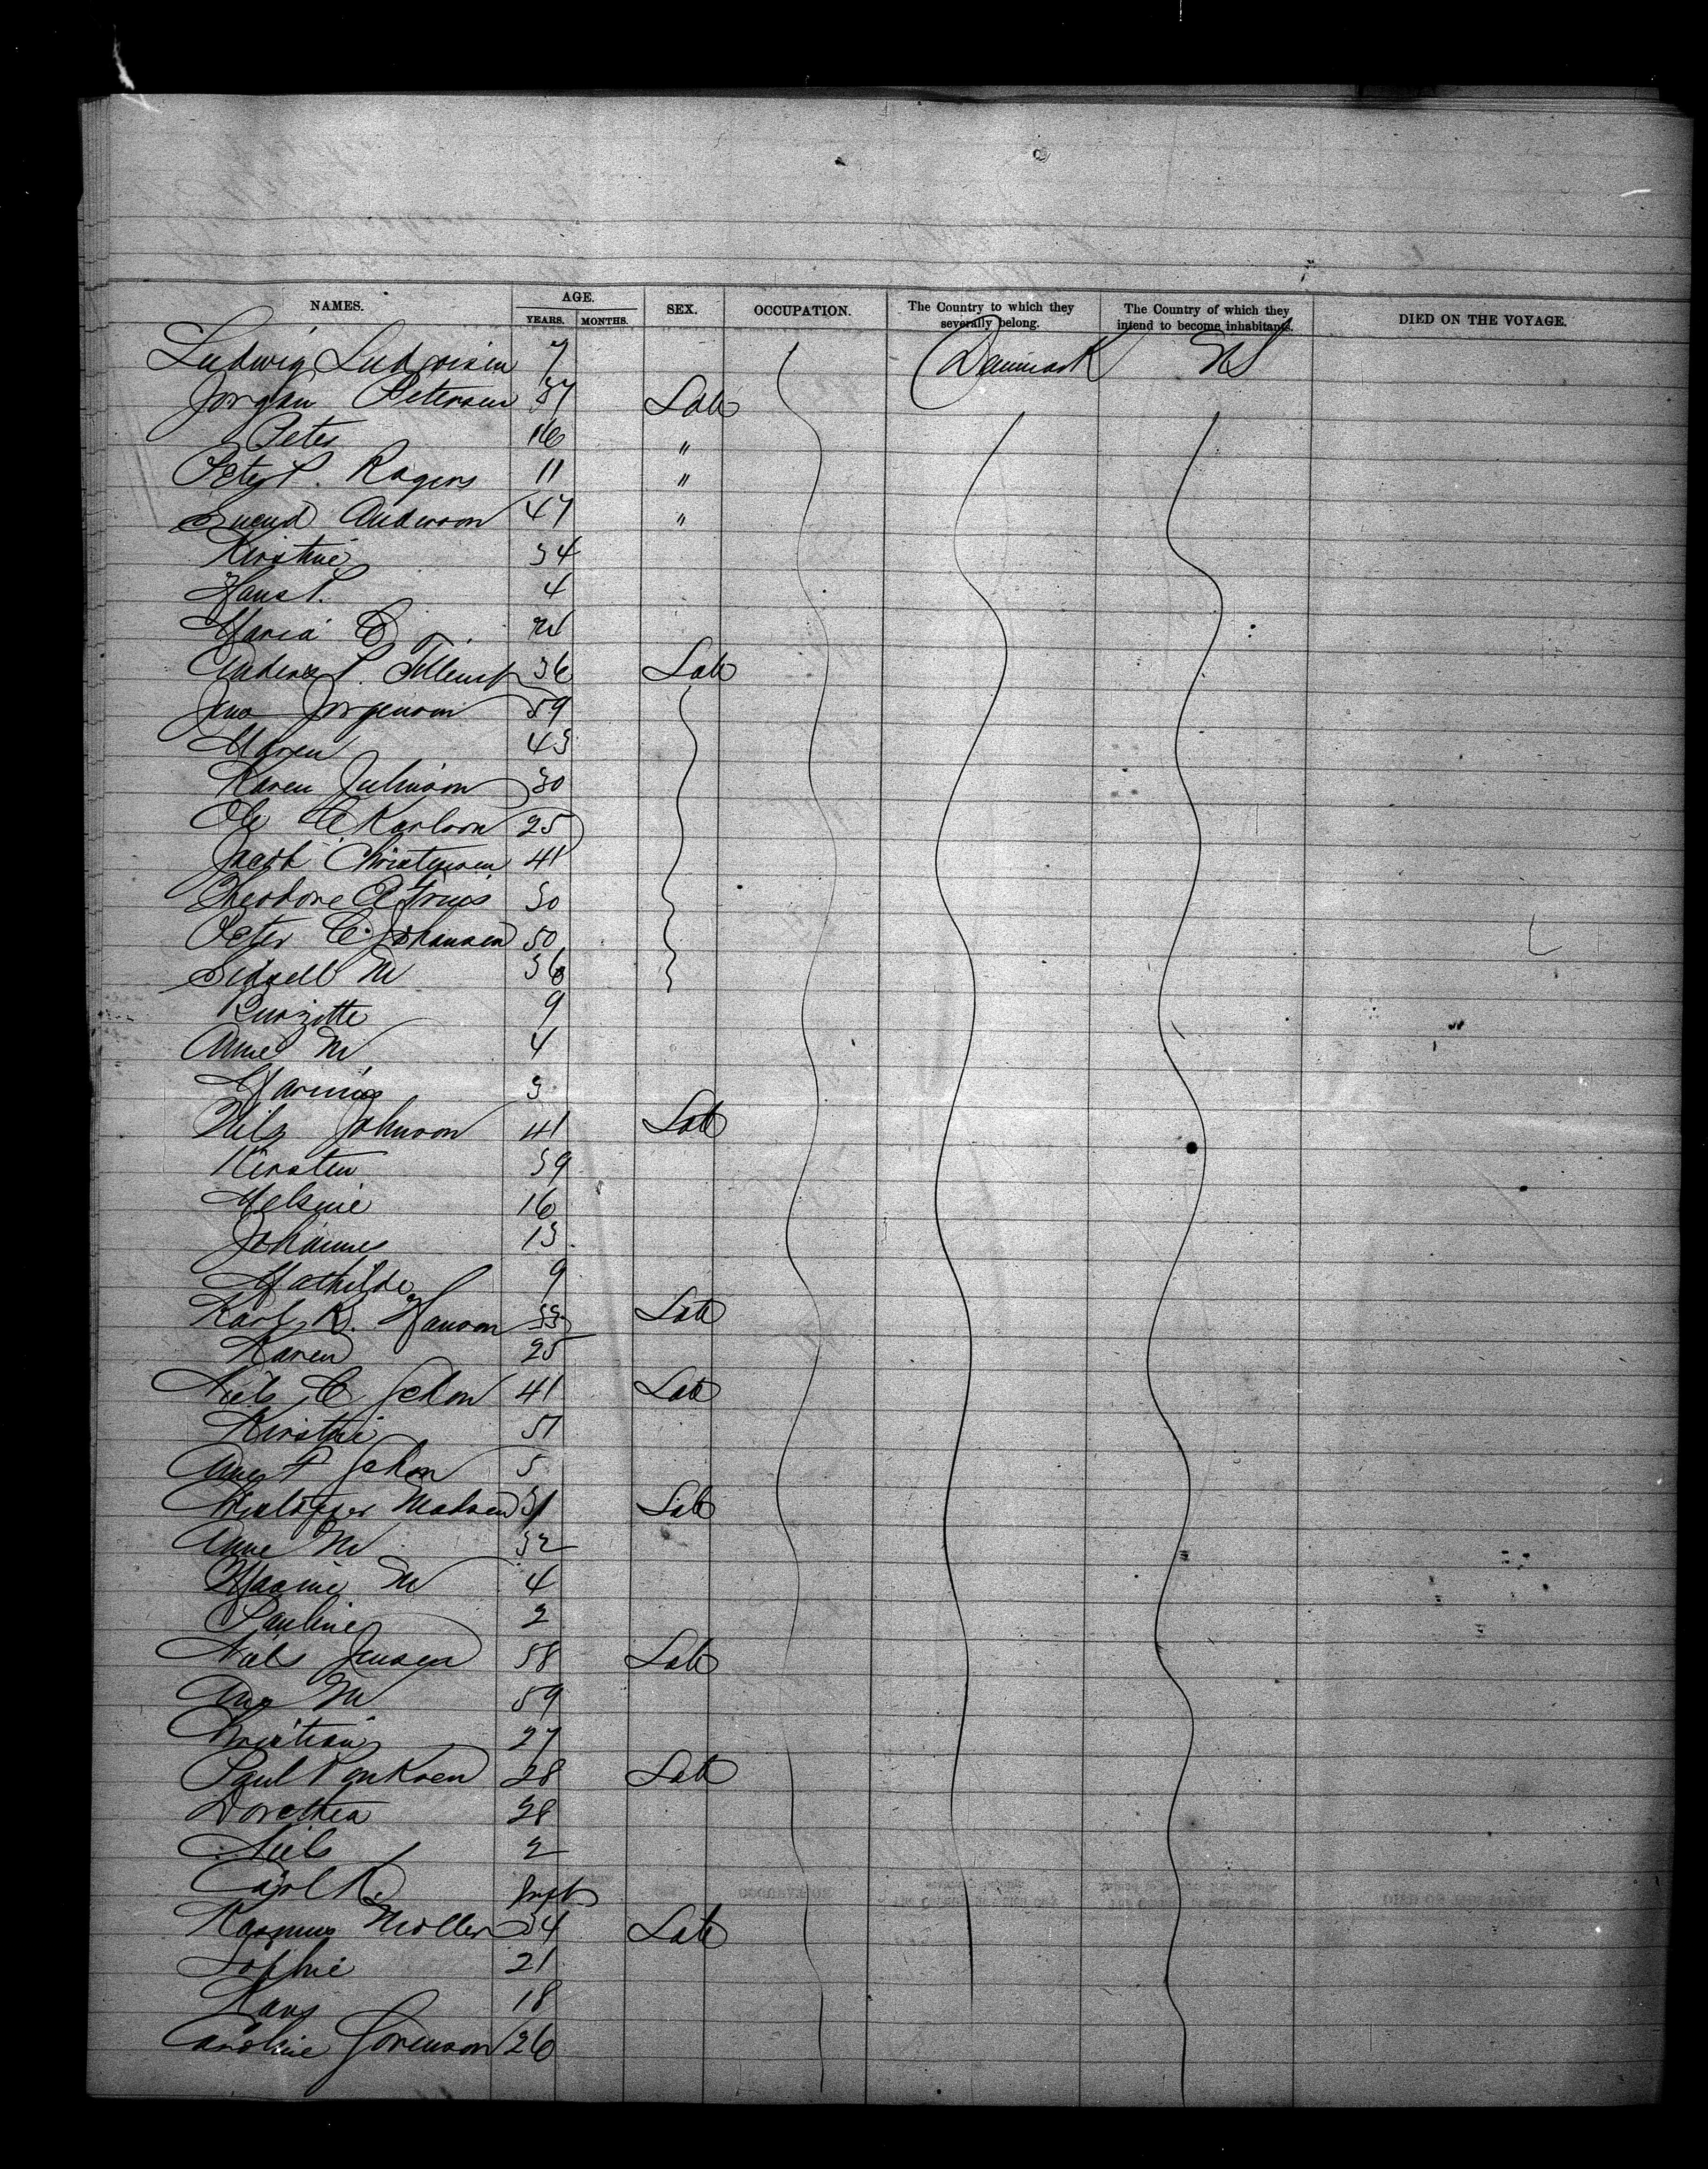 NAMES. AGE. SEX. OCCUPATION. The Country to which they severally belong. The Country of which they intend to become inhabitants. DIED ON THE VOYAGE.
YEARS. MONTHS.
Ludwig Ludwisin 7 Danmark US
Jorgan Petersen 37 Lab
Peter 16 "
Peter P. Rogers 11 "
Suend Anderson 47 "
Kirstine 34
Hans P. 4
Maria C
Anders P. 36 Lab
Jens Jorgenson 59
Maren 43
Karen Julinson 30
Ole C Karlson 25
Jacob Christensen 41
Theodore A Friis 30
Peter C. Johansen 50
Sidsell M 36
9
Anne M 4
Marinus 3
Nils Johnson 41 Lab
Kirsten 39
Melsine 16
Johannes 13
Mathilde 9
Karl K. Hanson 33 Lab
Karen 25
Niels C 41 Lab
Kirstine 51
5
Madsen 31 Lab
Anne M 32
Maxine M 4
Pauline 2
Niels Jensen 58 Lab
Ane M 59
Christian 27
Paul 28 Lab
Dorothea 28
Niels 2
Carl K. Inft
Rasmus Moller 34 Lab
Sophie 21
Hans 18
Caroline Sorenson 26